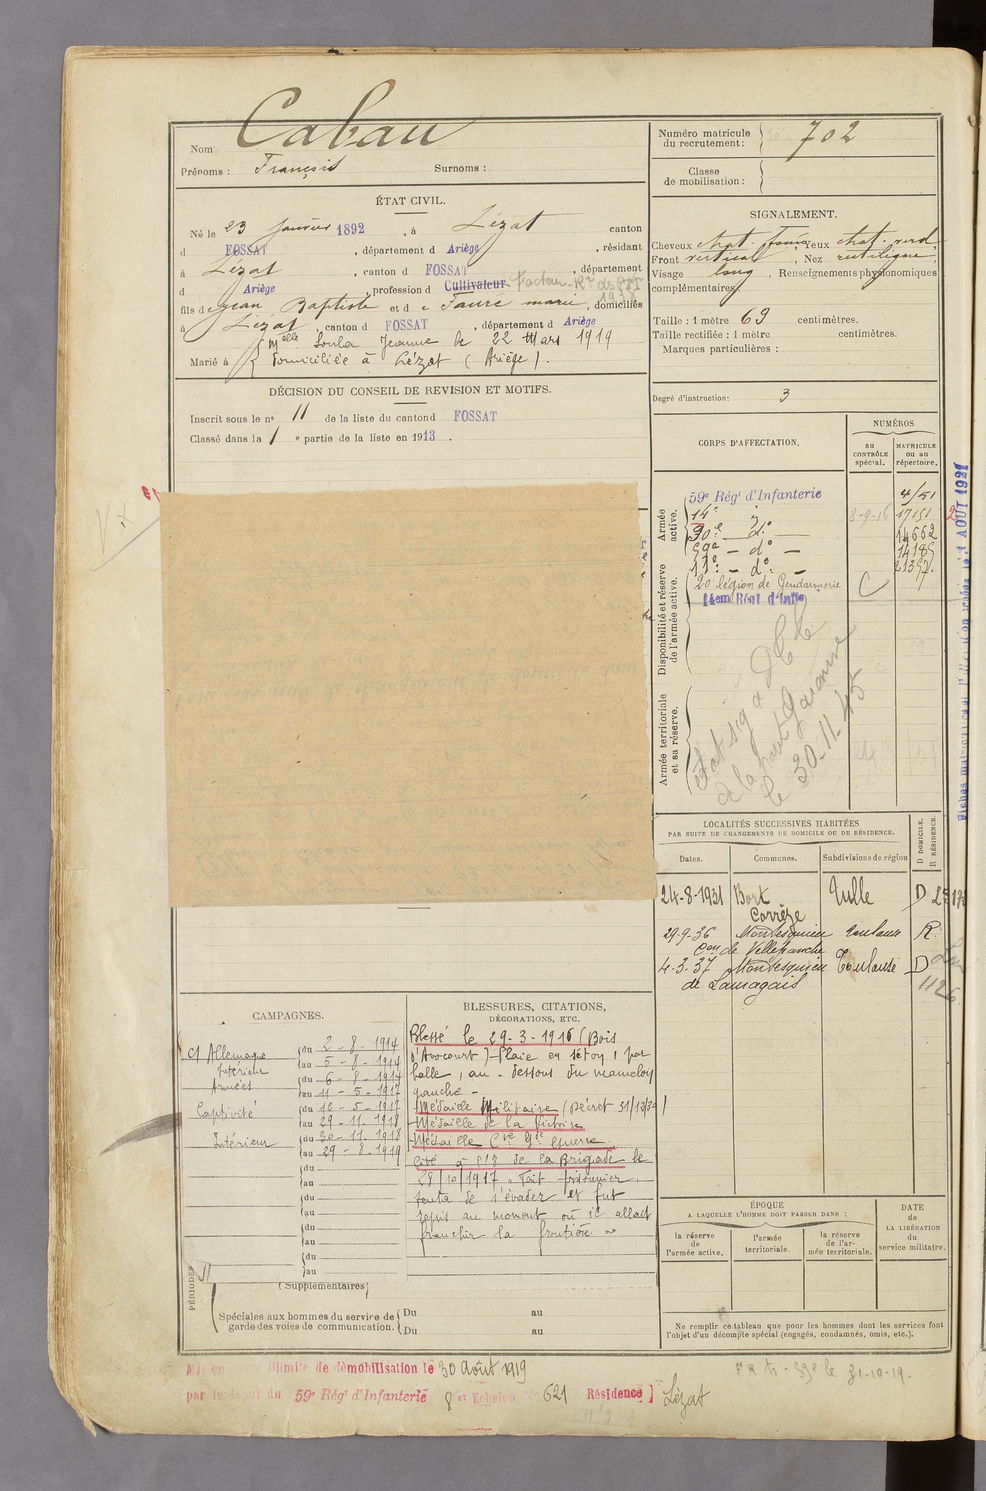 Nom Cabau
Prénoms : François Surnoms :
Numéro matricule du recrutement : 702
Classe de mobilisation :
ÉTAT CIVIL.
Né le 23 Janvier 1892, à Lézat canton
d FOSSAT, département d Ariège, résidant
à Lézat, canton d FOSSAT, département
d Ariège, profession d Cultivateur Facteur
1938
fils de Jean Baptiste et d e Faure marie, domiciliés
à Lézat, canton d FOSSAT, département d Ariège
Marié à Melle Soula Jeanne le 22 Mars 1919
domiciliée à Lézat (Ariège).
DÉCISION DU CONSEIL DE REVISION ET MOTIFS.
Inscrit sous le no 11 de la liste du canton d FOSSAT
Classé dans la 1 e partie de la liste en 1913.
SIGNALEMENT.
Cheveux chat. foncé yeux chat. verd
Front vertical, Nez rectiligne
Visage long, Renseignements physionomiques
complémentaires
Taille : 1 mètre 69 centimètres.
Taille rectifiée : 1 mètre centimètres.
Marques particulières :
Degré d'instruction : 3
CORPS D'AFFECTATION.
NUMÉROS
au CONTRÔLE spécial.
MATRICULE ou au répertoire.
Armée active.
59e Régt d'Infanterie 4/51
14e 8-9-16 17151
90e — do — 14662
59e — do — 14185
11e — do — 21397.
Disponibilité et réserve de l'armée active.
20 légion de Gendarmerie C
14em Régt d'Infie
Armée territoriale et sa réserve.
Etat sig
à la haute Garonne
le 30-11-45
Fiches
AOUT 1921
LOCALITÉS SUCCESSIVES HABITÉES
PAR SUITE DE CHANGEMENTS DE DOMICILE OU DE RÉSIDENCE.
Dates. Communes. Subdivisions de région D DOMICILE. R RÉSIDENCE.
24-8-1931 Bort Tulle D
Corrèze
29-9-36 Montesquieu Toulouse R.
Con de Villefranche
4-3-37 Montesquieu Toulouse D
de Lauragais
1126
CAMPAGNES.
c/ Allemagne
Intérieur du 2-8-1914
au 5-8-1914
Armées du 6-8-1914
au 11-5-1917
Captivité du 12-5-1917
au 29-11-1918
Intérieur du 30-11-1918
au 29-8-1919
du
au
du
au
du
au
du
au
PÉRIODES
(Supplémentaires
Spéciales aux hommes du service de garde des voies de communication.
Du au
Du au
BLESSURES, CITATIONS,
DÉCORATIONS, ETC.
Blessé le 29-3-1916 (Bois
d'Avocourt) Plaie en séton, par
balle, au-dessous du mamelon
gauche -
Médaille Militaire (Décret 31/12/34)
Médaille de la Victoire
Médaille Cve Gde Guerre.
Cité à l'O de la Brigade le
28/10/1917 "Fait prisonnier,
tenta de s'évader et fut
repris au moment où il allait
franchir la frontière"
ÉPOQUE
A LAQUELLE L'HOMME DOIT PASSER DANS :
la réserve de l'armée active.
l'armée territoriale.
la réserve de l'armée territoriale.
DATE de LA LIBÉRATION du service militaire.
Ne remplir ce tableau que pour les hommes dont les services font
l'objet d'un décompte spécial (engagés, condamnés, omis, etc.).
illimité de démobilisation le 30 Août 1919
par le dépôt du 59e Régt d'Infanterie 8 e Echelon 621 Résidence Lézat
59e le 31-10-19.